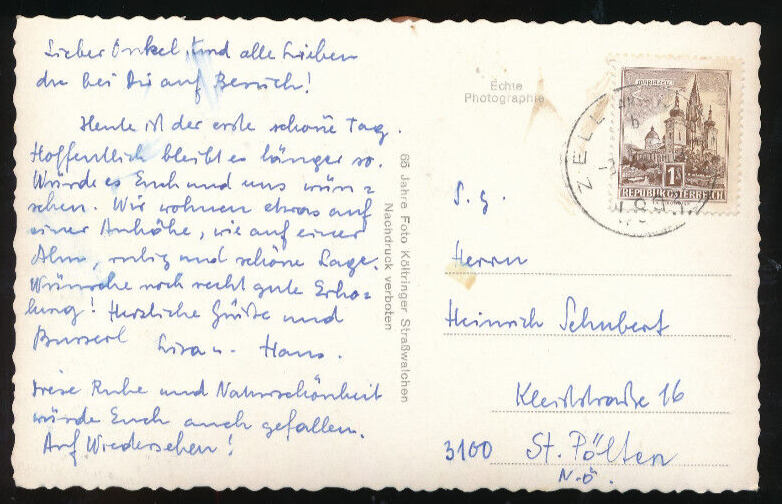 Lieber Onkel, und alle Lieben
die bei Dir auf Besuch!
Heute ist der erste schöne Tag.
Hoffentlich bleibt es länger so.
Würde es Euch und uns wün=
schen. Wir wohnen etwas auf
einer Anhöhe, wie auf einer
Alm, ruhig und schöne Lage.
Wünsche noch recht gute Erho=
lung! Herzliche Grüße und
Busserl Lisa u. Hans.
Diese Ruhe und Naturschönheit
würde Euch auch gefallen.
Auf Wiedersehen!
66 Jahre Foto Költringer Straßwalchen
Nachdruck verboten
Echte
Photographie
MARIAZELL
1S
REPUBLIK ÖSTERREICH
ZELL
S. g.
Herrn
Heinrich Schubert
Kleiststraße 16
3100 St. Pölten
N.Ö.